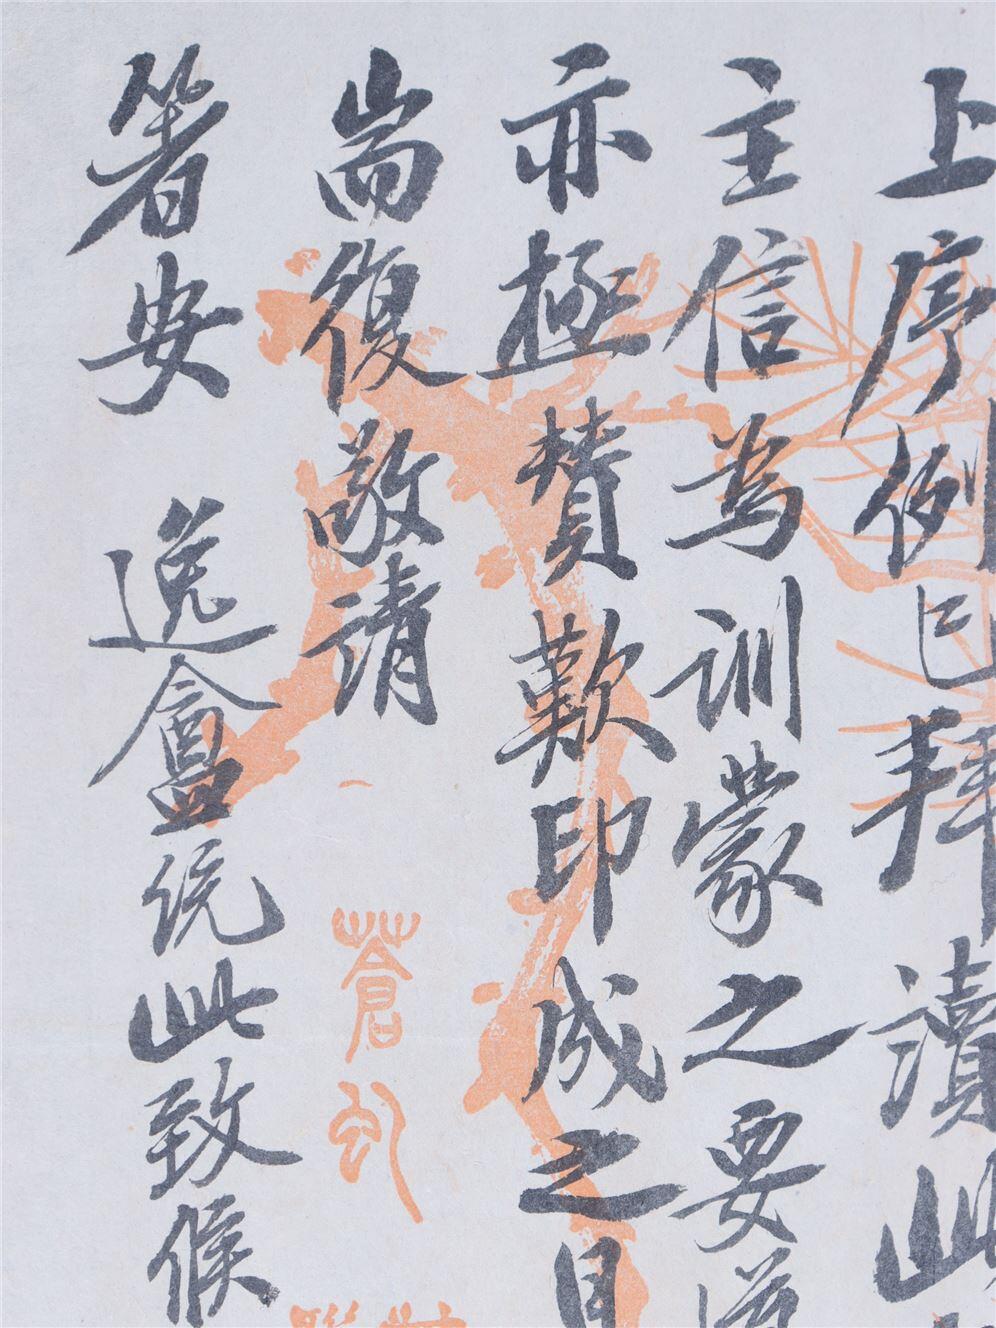 上序例已拜讀此
主信為訓蒙之要道
亦極贊歎印成之日
耑復敬請
著安 逸盦統此致候
蒼虬